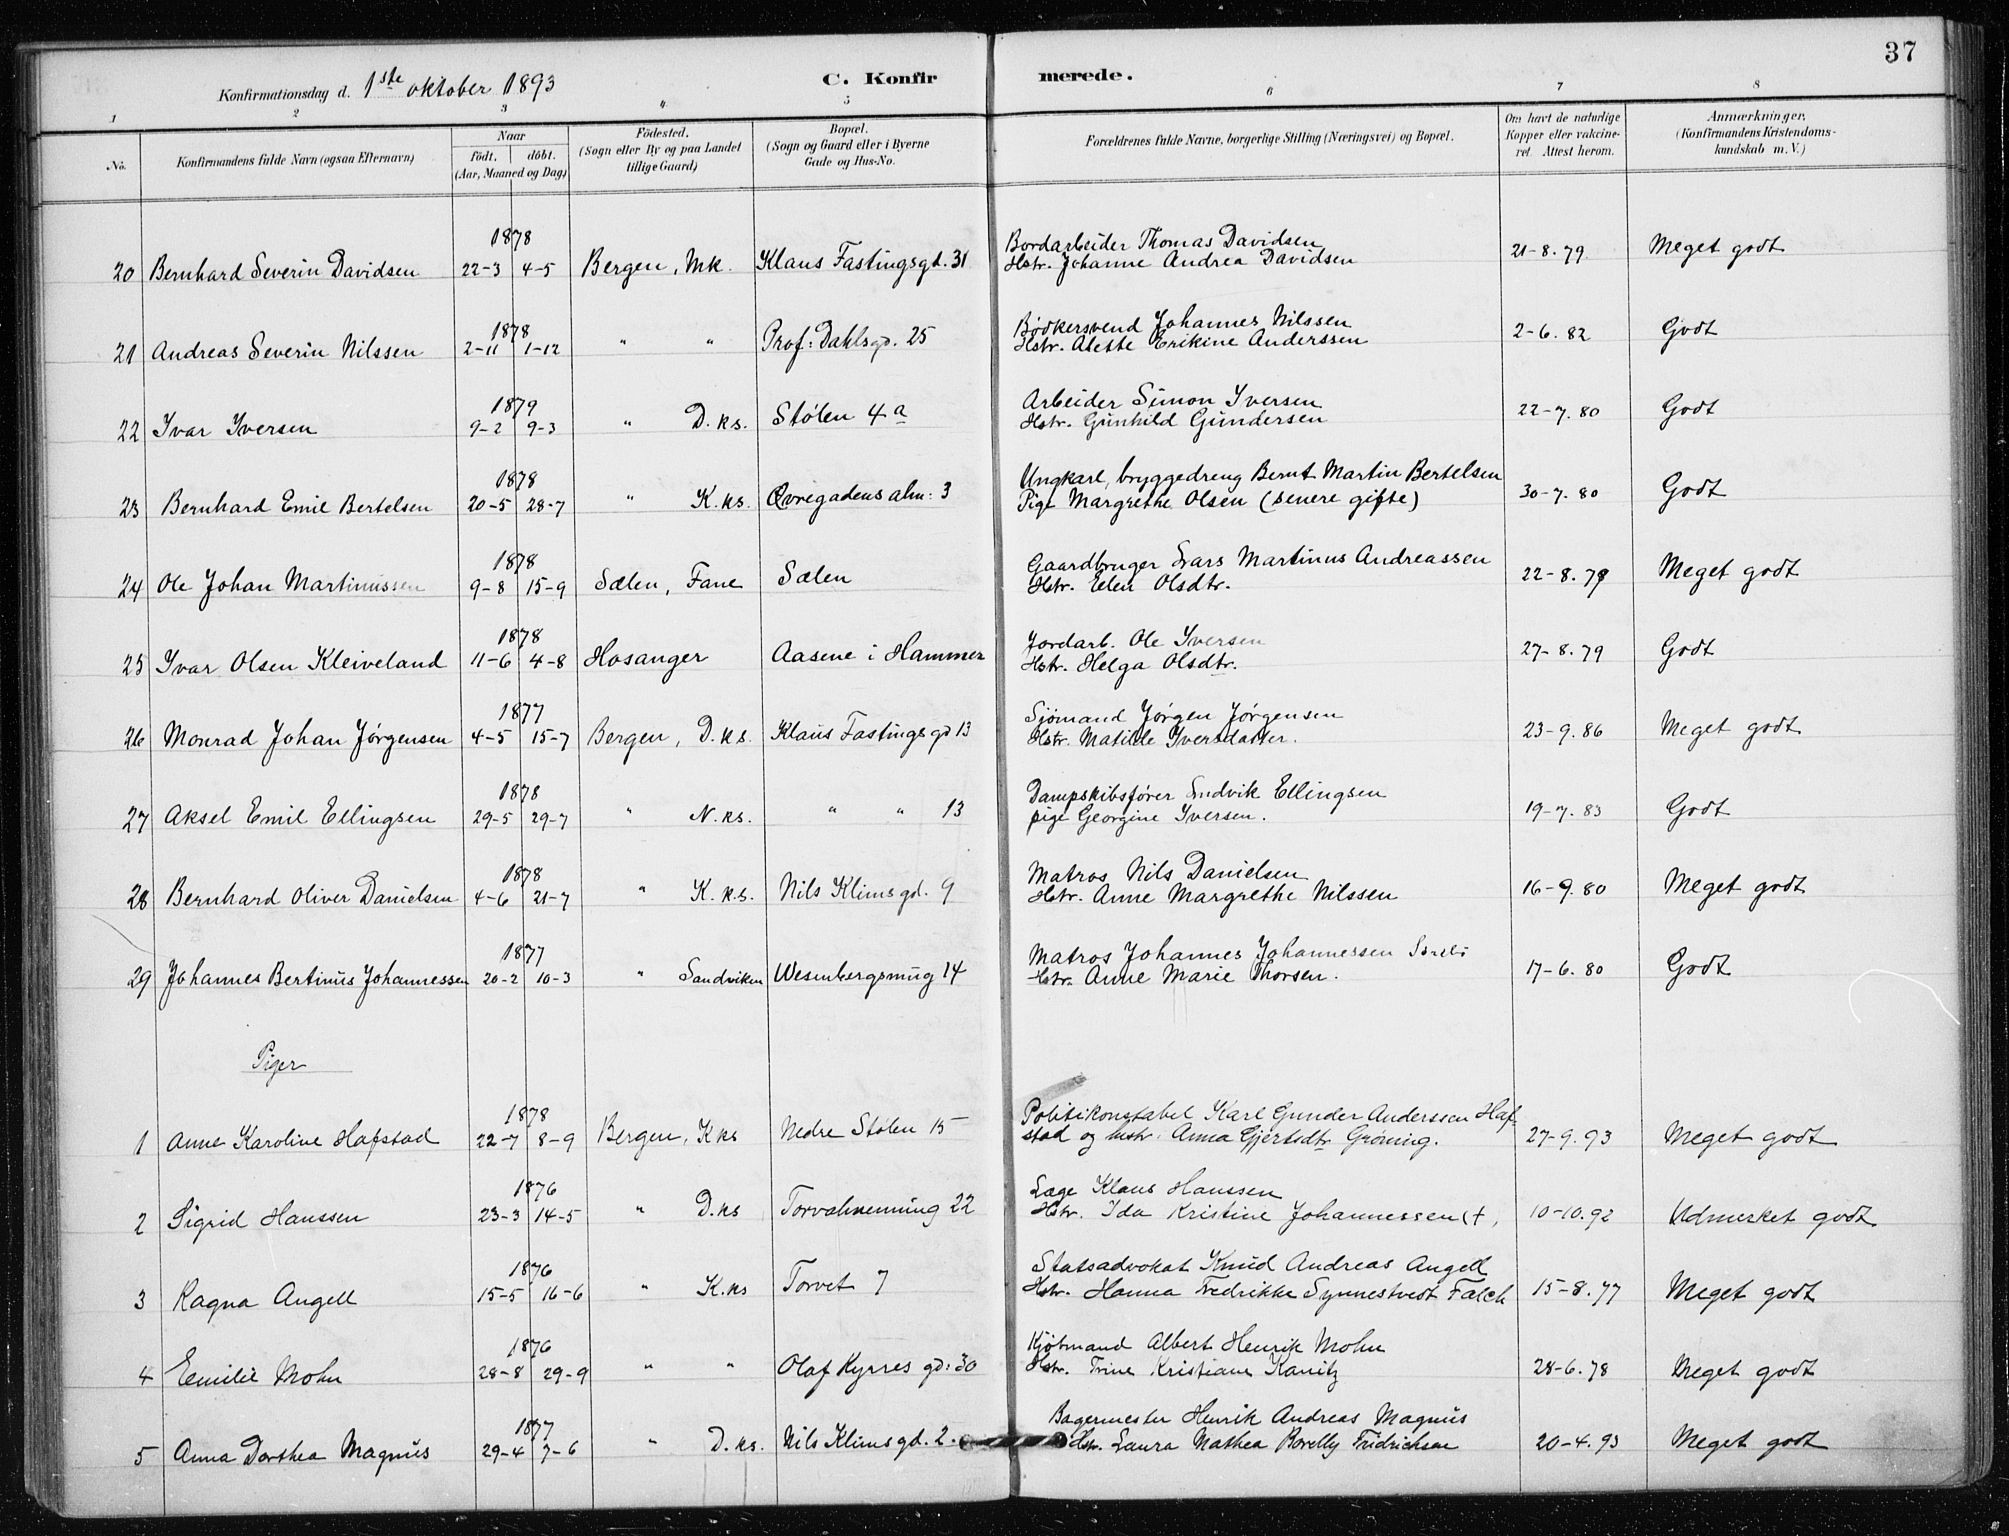 37
Konfirmationsdag d. 1ste oktober 1893
C. Konfirmerede.
1 2 3 4 5 6 7 8
No. Konfirmandens fulde Navn (ogsaa Efternavn) Naar födt. döbt. (Aar, Maaned og Dag) Födested. (Sogn eller By og paa Landet tillige Gaard) Bopæl. (Sogn og Gaard eller i Byerne Gade og Hus-No. Forældrenes fulde Navne, borgerlige Stilling (Næringsvei) og Bopæl. Om havt de naturlige Kopper eller vakcineret. Attest herom. Anmærkninger. (Konfirmandens Kristendomskundskab m. V.)
1878 Bordarbeider Thomas Davidsen
20 Bernhard Severin Davidsen 22-3 4-5 Bergen, Mk. Klaus Fastingsgd. 31 Hstr. Johanne Andrea Davidsen 21-8.79 Meget godt
1878 Bödkersvend Johannes Nilssen
21 Andreas Severin Nilssen 2-11 1-12 " " Prof: Dahlsgd. 25 Hstr. Alette Erikine Anderssen 2-6.82 Godt
1879 Arbeider Simon Iversen
22 Ivar Iversen 9-2 9-3 " D.ks. Stölen 4a Hstr. Gunhild Gundersen 22-7.80 Godt
1878 Ungkarl, bryggedreng Bernt Martin Bertelsen
23 Bernhard Emil Bertelsen 20-5 28-7 " K.ks. Øvregadens alm: 3 Pige Margrethe Olsen (senere gifte) 30-7.80 Godt
1878 Gaardbruger Lars Martinus Andreassen
24 Ole Johan Martinussen 9-8 15-9 Sælen, Fane Sælen Hstr. Elen Olsdtr. 22-8.79 Meget godt
1878 Jordarb. Ole Iversen
25 Ivar Olsen Kleiveland 11-6 4-8 Hosanger Aasene i Hammer Hstr. Helga Olsdtr. 27-8.79 Godt
1877 Sjömand Jørgen Jørgensen
26 Monrad Johan Jørgensen 4-5 15-7 Bergen, D.ks. Klaus Fastingsgd 13 Hstr. Matilde Iversdatter. 23-9.86 Meget godt
1878 Dampskibsfører Ludvik Ellingsen
27 Aksel Emil Ellingsen 29-5 29-7 " N.ks. " " 13 pige Georgine Iversen. 19-7.83 Godt
1878 Matros Nils Danielsen
28 Bernhard Oliver Danielsen 4-6 21-7 " K.k.s. Nils Klims gd. 9 Hstr. Anne Margrethe Nilssen 16-9.80 Meget godt
1877 Matros Johannes Johannessen
29 Johannes Bertinus Johannessen 20-2 10-3 " Sandviken Wesenbergsmug 14 Hstr. Anne Marie Thorsen. 17-6.80 Godt
Piger
1878 Politikonstabel Karl Gunder Anderssen Haf-
1 Anne Karoline Hafstad 22-7 8-9 Bergen, Kks Nedre Stølen 15 stad og hustr. Anna Gjertsdtr Gröning. 27-9.93 Meget godt
1876 Læge Klaus Hanssen
2 Sigrid Hanssen 23-3 14-5 " D.ks Torvalmenning 22 Hstr. Ida Kristine Johannessen (+, 10-10.92 Udmerket godt
1876 Statsadvokat Knud Andreas Angell
3 Ragna Angell 15-5 16-6 " K.ks Torvet 7 Hstr. Hanna Fredrikke Synnestvedt Falch 15-8.77 Meget godt
1876 Kjöbmand Albert Henrik Mohn
4 Emilie Mohn 28-8 29-9 " " Olaf Kyrres gd: 30 Hstr. Trine Kristiane Kanitz 28-6.78 Meget godt
1877 Bagermester Henrik Andreas Magnus
5 Anna Dorthea Magnus 29-4 7-6 " D.ks. Nils Klims gd. 2. Hstr. Laura Mathea Fridrichsen 20-4.93 Meget godt